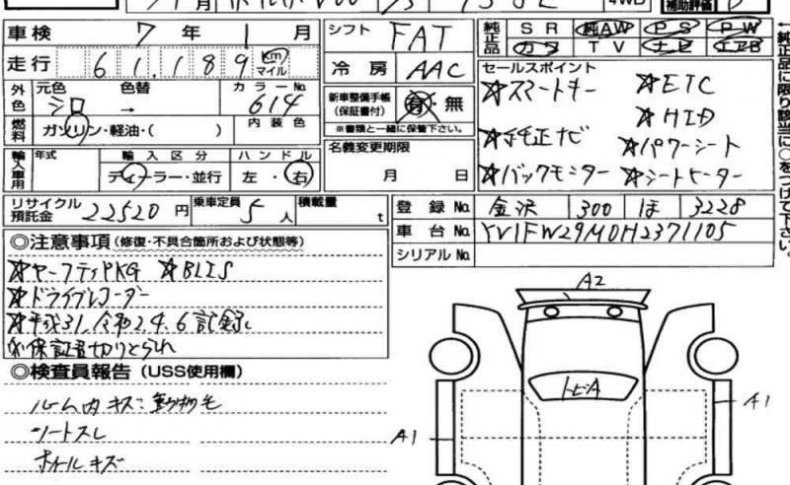 4WD
補助評価
車検 7年 1月
走行 61,189 km マイル
外色 元色 シロ 色替 → カラーNo. 614
燃料 ガソリン・軽油・( ) 内装色
輸入車用 年式 輸入区分 ディーラー・並行 ハンドル 左・右
シフト FAT
冷房 AAC
新車整備手帳 (保証書付) 有・無
※書類と一緒に保管下さい。
名義変更期限
月 日
純正品 SR 純AW PS PW
カワ TV ナビ エアB
←純正品に限り該当に○をつけて下さい。
セールスポイント
☆スマートキー ☆ETC
☆HID
☆純正ナビ ☆パワーシート
☆バックモニター ☆シートヒーター
リサイクル預託金 22520円 乗車定員 5人 積載量 t
登録No. 金沢 300 ほ 3228
車台No. YV1FW29MDH2371105
シリアルNo.
◎注意事項 (修復・不具合箇所および状態等)
☆セーフティPKG ☆BLIS
☆ドライブレコーダー
☆平成31,令和2.4.6記録
※保証書切りとられ
◎検査員報告 (USS使用欄)
ルーム内キズ:動物毛
シートスレ
ホイールキズ
A2
トビA
A1
A1